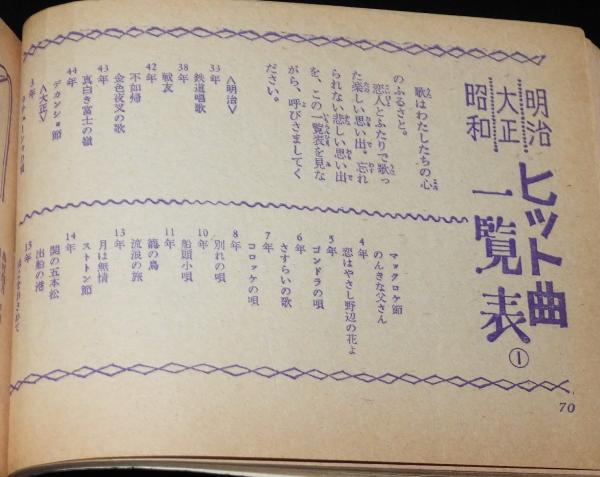 明治
大正
昭和
ヒット曲
一覧表
①
歌はわたしたちの心
のふるさと。
恋人とふたりで歌っ
た楽しい思い出。忘れ
られない悲しい思い出
を、この一覧表を見な
がら、呼びさましてく
ださい。
〈明治〉
33年
鉄道唱歌
38年
戦友
42年
不如帰
43年
金色夜叉の歌
真白き富士の嶺
44年
デカンショ節
〈大正〉
3年
マックロケ節
のんきな父さん
4年
恋はやさし野辺の花よ
5年
ゴンドラの唄
6年
さすらいの歌
7年
コロッケの唄
8年
別れの唄
10年
船頭小唄
11年
籠の鳥
13年
流浪の旅
月は無情
ストトン節
14年
関の五本松
出船の港
15年
70